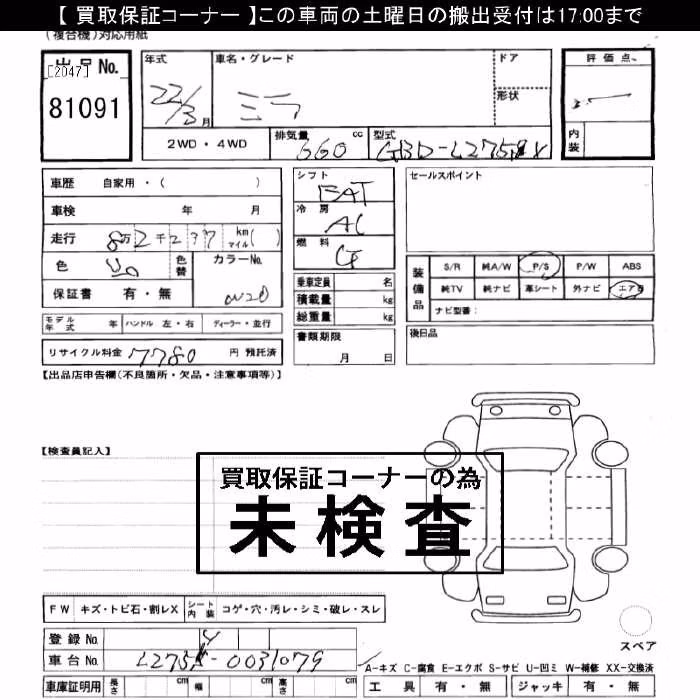 【 買取保証コーナー 】この車両の土曜日の搬出受付は17:00まで
(複合機)対応用紙
出品No.
[2047]
81091
年式
22/3月
車名・グレード
ミラ
ドア
形状
評価点
内装
2WD・4WD
排気量 660 cc
型式
車歴 自家用・( )
車検 年 月
走行 8万2千277 km マイル( )
色
色替
カラーNo.
W20
保証書 有・無
モデル年式 年 ハンドル 左・右 ディーラー・並行
リサイクル料金 7780 円 預託済
シフト
FAT
冷房
AC
燃料
G
乗車定員 名
積載量 kg
総重量 kg
書類期限
月 日
セールスポイント
装備品
S/R 純A/W P/S P/W ABS
純TV 純ナビ 革シート 外ナビ エアB
ナビ型番:
後日品
【出品店申告欄(不良箇所・欠品・注意事項等)】
【検査員記入】
買取保証コーナーの為
未検査
FW キズ・トビ石・割レX シート内装 コゲ・穴・汚レ・シミ・破レ・スレ
登録No.
車台No. -0031079
車庫証明用 長さ cm 幅 cm 高さ cm
スペア
A-キズ C-腐食 E-エクボ S-サビ U-凹ミ W-補修 XX-交換済
工具 有・無 ジャッキ 有・無